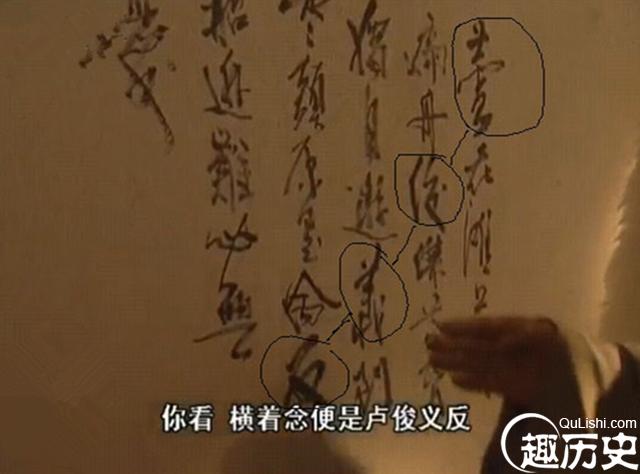 蘆花灘
舟俊傑黃昏
獨自遊義到
頭原是命反
逃難必無
你看 横着念便是卢俊义反
QuLishi.com
趣历史